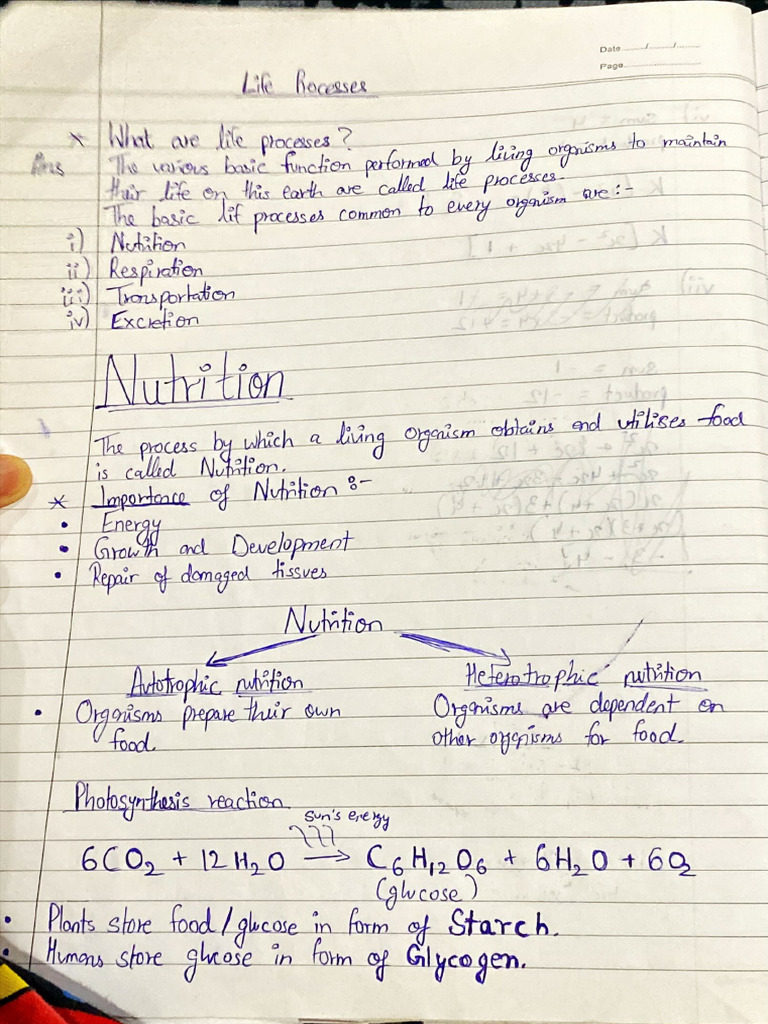 Date ....../....../......
Page......................
Life Processes
* What are life processes?
Ans The various basic function performed by living organisms to maintain
their life on this earth are called life processes.
The basic lif processes common to every organism are :-
i) Nutrition
ii) Respiration
iii) Transportation
iv) Excretion
Nutrition
The process by which a living organism obtains and utilises food
is called Nutrition.
* Importance of Nutrition :-
• Energy
• Growth and Development
• Repair of damaged tissues
Nutrition
Autotrophic nutrition Heterotrophic nutrition
• Organisms prepare their own Organisms are dependent on
food. other organisms for food.
Photosynthesis reaction
Sun's energy
6CO₂ + 12H₂O → C₆H₁₂O₆ + 6H₂O + 6O₂
(glucose)
• Plants store food/glucose in form of Starch.
• Humans store glucose in form of Glycogen.